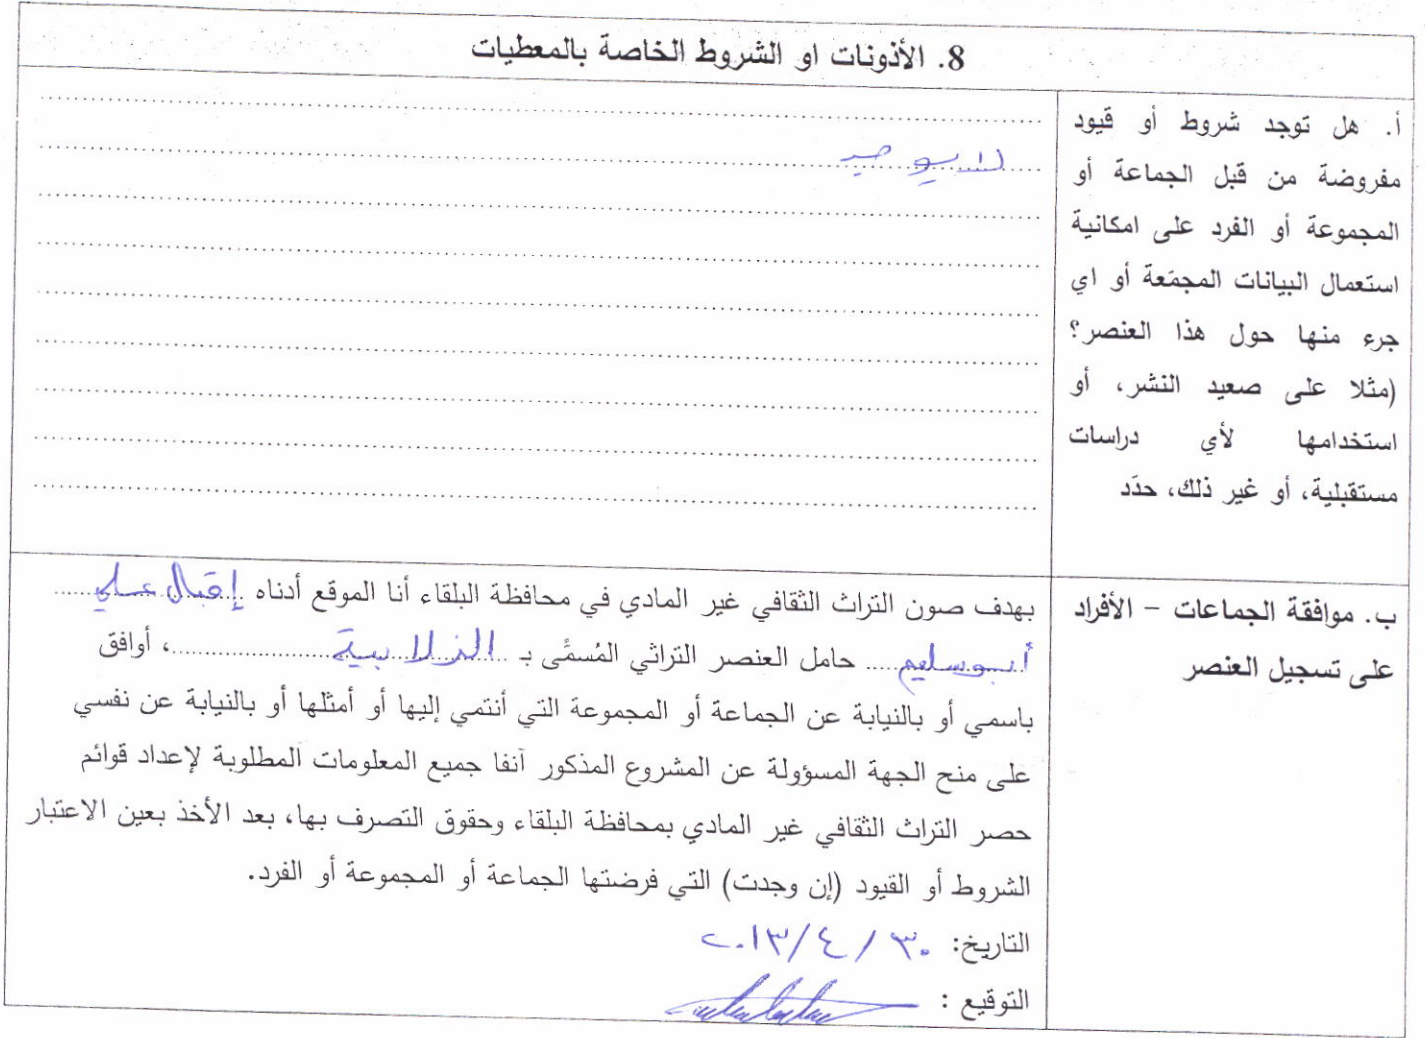 8. الأذونات او الشروط الخاصة بالمعطيات
أ. هل توجد شروط أو قيود
مفروضة من قبل الجماعة أو
المجموعة أو الفرد على امكانية
استعمال البيانات المجمّعة أو اي
جرء منها حول هذا العنصر؟
(مثلا على صعيد النشر، أو
استخدامها لأي دراسات
مستقبلية، أو غير ذلك، حدّد
لا يوجد
ب. موافقة الجماعات - الأفراد
على تسجيل العنصر
بهدف صون التراث الثقافي غير المادي في محافظة البلقاء أنا الموقع أدناه إقبال علي
أبو سليم حامل العنصر التراثي المُسمَّى بـ الزلابية، أوافق
باسمي أو بالنيابة عن الجماعة أو المجموعة التي أنتمي إليها أو أمثلها أو بالنيابة عن نفسي
على منح الجهة المسؤولة عن المشروع المذكور آنفا جميع المعلومات المطلوبة لإعداد قوائم
حصر التراث الثقافي غير المادي بمحافظة البلقاء وحقوق التصرف بها، بعد الأخذ بعين الاعتبار
الشروط أو القيود (إن وجدت) التي فرضتها الجماعة أو المجموعة أو الفرد.
التاريخ: ٣٠ / ٤ / ٢٠١٣
التوقيع :